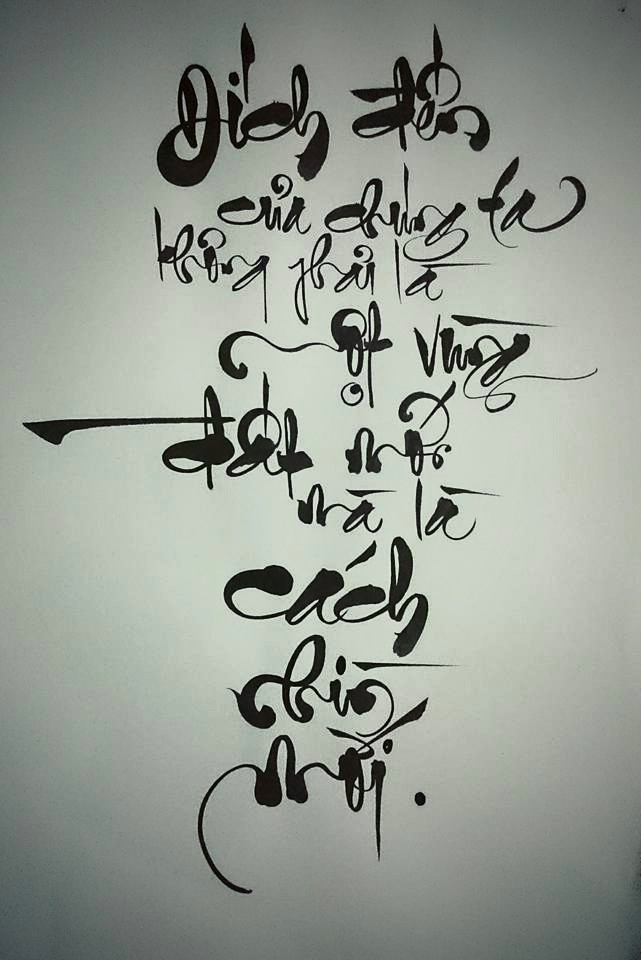 Đích đến
của chúng ta
không phải là
một vùng
đất mới
mà là
cách
nhìn
mới.